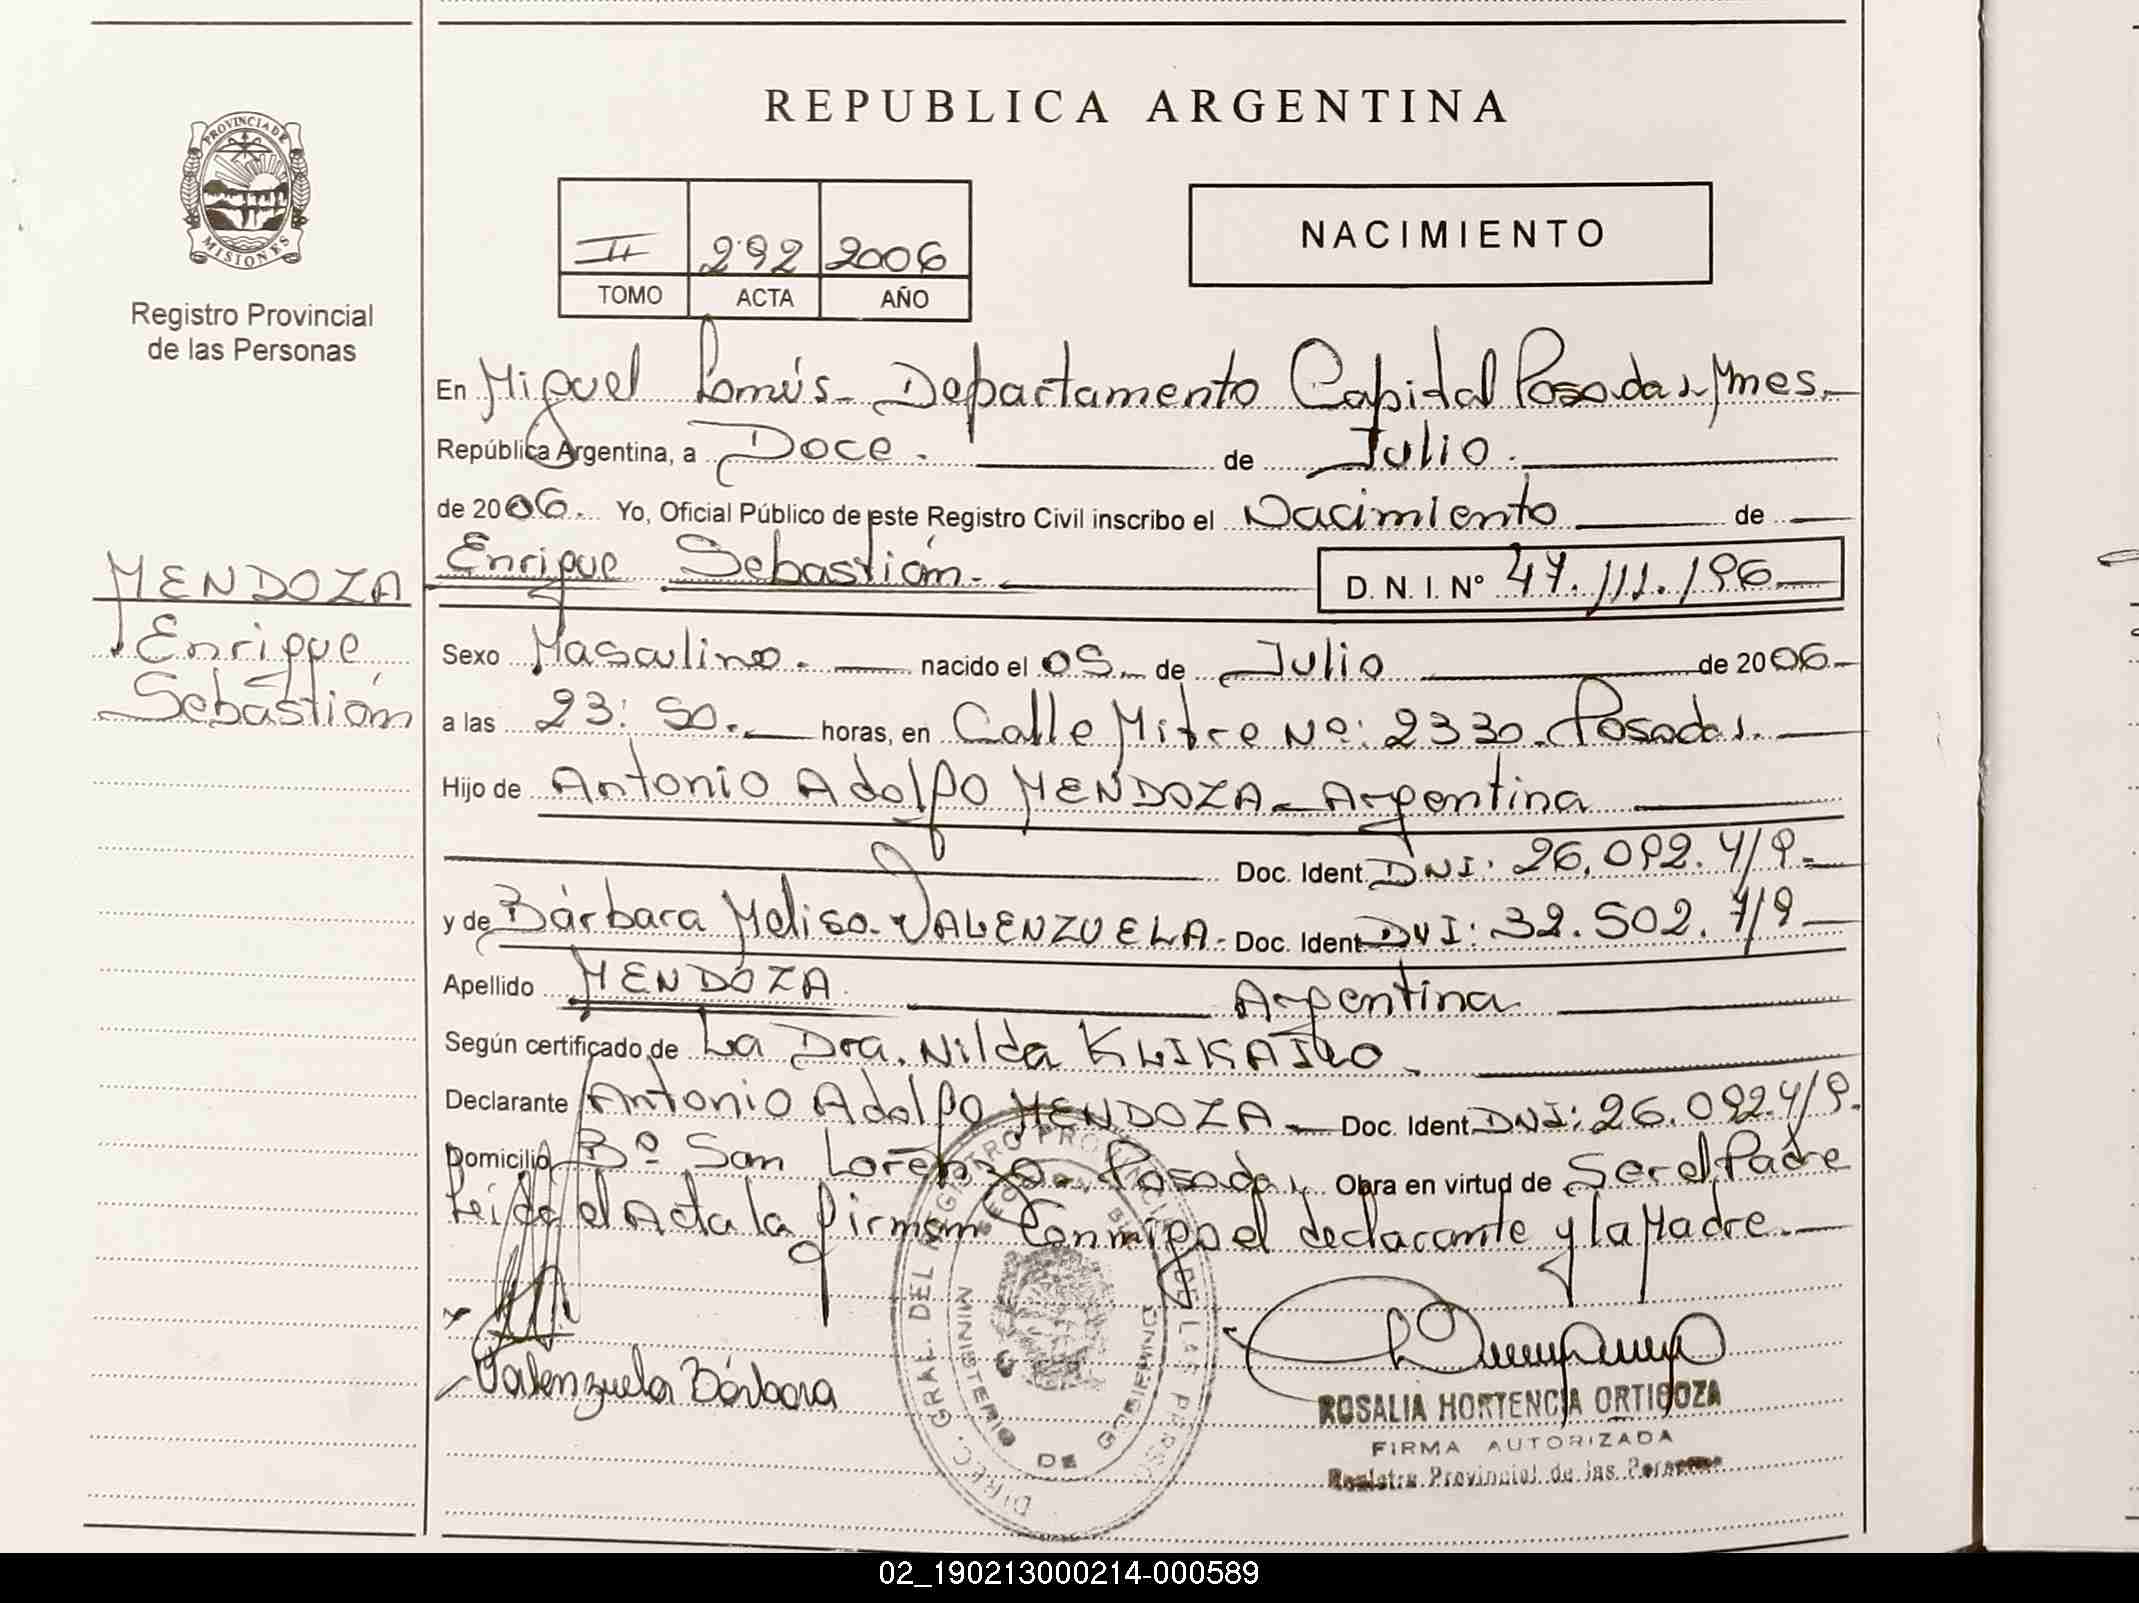 REPUBLICA ARGENTINA
PROVINCIA DE
MISIONES
Registro Provincial
de las Personas
II 292 2006
TOMO ACTA AÑO
NACIMIENTO
En Miguel Lanús - Departamento Capital Posadas Mnes.
República Argentina, a Doce. de Julio.
de 2006. Yo, Oficial Público de este Registro Civil inscribo el Nacimiento de
Enrique Sebastián.
D. N. I. Nº 47.111.196
MENDOZA
Enrique
Sebastián
Sexo Masculino. nacido el 05 de Julio de 2006
a las 23:50. horas, en Calle Mitre Nº: 2330. Posadas.
Hijo de Antonio Adolfo MENDOZA - Argentina
Doc. Ident. DNI: 26.092.419.
y de Bárbara Melisa - VALENZUELA - Doc. Ident DNI: 32.502.719
Apellido MENDOZA Argentina
Según certificado de La Dra. Nilda
Declarante Antonio Adolfo MENDOZA - Doc. Ident. DNI: 26.092.419.
Domicilio Bº San Lorenzo - Posadas Obra en virtud de Ser el Padre
Leída el Acta la firman Conmigo el declarante y la Madre.
Valenzuela Bárbara
DIREC. GRAL. DEL REGISTRO PROVINCIAL DE LAS PERSO
MINISTERIO DE GOBIERNO
ROSALIA HORTENCIA ORTIGOZA
FIRMA AUTORIZADA
Registro Provincial de las Personas
02_190213000214-000589